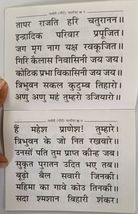 तापर राजति हरि चतुरानन॥
इन्द्रादिक परिवार प्रपूजित।
जग मृग नाग यक्ष रवकूजित॥
गिरि कैलास निवासिनी जय जय।
कोटिक प्रभा विकासिनी जय जय॥
त्रिभुवन सकल कुटुम्ब तिहारी।
अणु अणु महं तुम्हरो उजियारी॥
हैं महेश प्राणेश! तुम्हारे।
त्रिभुवन के जो नित रखवारे॥
उनसों पति तुम प्राप्त कीन्ह जब।
सुकृत पुरातन उदित भए तब॥
बूढ़ा बैल सवारी जिनकी।
महिमा का गावे कोउ तिनकी॥
सदा श्मशान बिहारी शंकर।